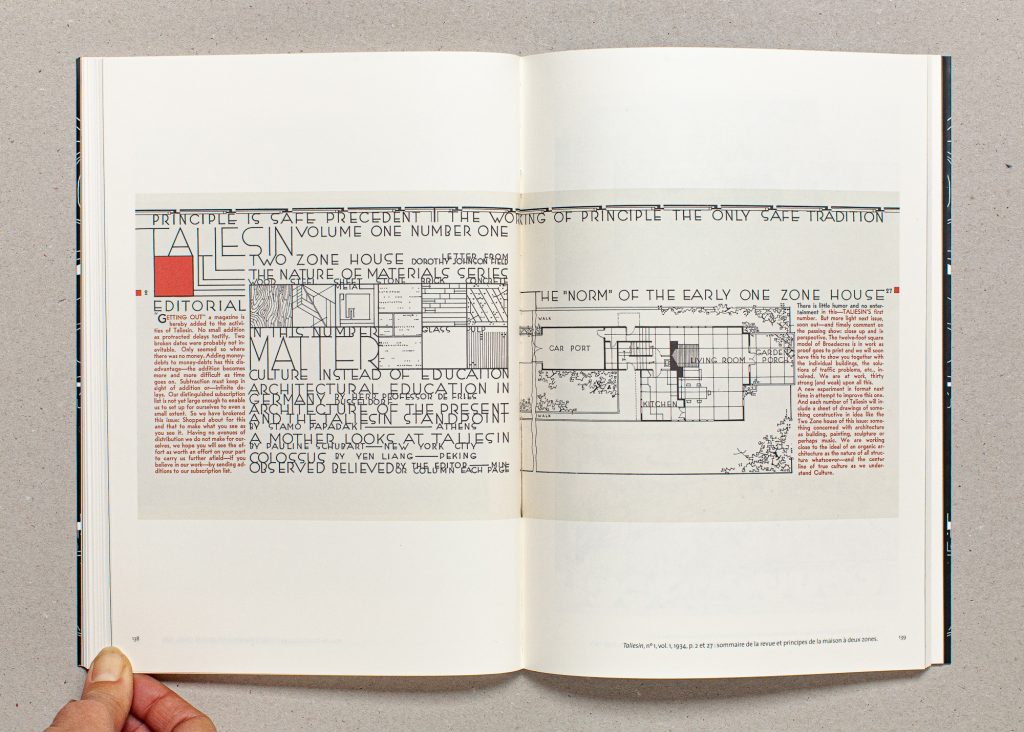 PRINCIPLE IS SAFE PRECEDENT THE WORKING OF PRINCIPLE THE ONLY SAFE TRADITION
TALIESIN VOLUME ONE NUMBER ONE
LETTER FROM
TWO ZONE HOUSE DOROTHY JOHNSON
THE NATURE OF MATERIALS SERIES
WOOD STEEL SHEET METAL STONE BRICK CONCRETE
GLASS PULP
2
EDITORIAL
"GETTING OUT" a magazine is
hereby added to the activi-
ties of Taliesin. No small addition
as protracted delays testify. Two
broken dates were probably not in-
evitable. Only seemed so where
there was no money. Adding money-
debts to money-debts has this dis-
advantage—the addition becomes
more and more difficult as time
goes on. Subtraction must keep in
sight of addition or—infinite de-
lays. Our distinguished subscription
list is not yet large enough to enable
us to set up for ourselves to even a
small extent. So we have brokered
this issue: Shopped about for this
and that to make what you see as
you see it. Having no avenues of
distribution we do not make for our-
selves, we hope you will see the ef-
fort as worth an effort on your part
to carry us further afield—if you
believe in our work—by sending ad-
ditions to our subscription list.
IN THIS NUMBER
MATTER
CULTURE INSTEAD OF EDUCATION
ARCHITECTURAL EDUCATION IN
GERMANY BY BERT PROFESSOR DE FRIES
DUSSELDORF
ARCHITECTURE OF THE PRESENT
AND THE TALIESIN STANDPOINT
BY STAMO PAPADAKI ATHENS
A MOTHER LOOKS AT TALIESIN
BY PAULINE SCHUBART—NEW YORK CITY
COLOSSUS BY YEN LIANG—PEKING
OBSERVED BELIEVED BY THE EDITOR
COLUMN EACH PAGE
THE "NORM" OF THE EARLY ONE ZONE HOUSE
27
WALK
CAR PORT
LIVING ROOM
GARDEN PORCH
KITCHEN
WALK
There is little humor and no enter-
tainment in this—TALIESIN'S first
number. But more light next issue,
soon out—and timely comment on
the passing show: close up and in
perspective. The twelve-foot square
model of Broadacres is in work as
proof goes to print and we will soon
have this to show you together with
the individual buildings, the solu-
tions of traffic problems, etc., in-
volved. We are at work, thirty
strong (and weak) upon all this.
A new experiment in format next
time in attempt to improve this one.
And each number of Taliesin will in-
clude a sheet of drawings of some-
thing constructive in idea like the
Two Zone house of this issue: some-
thing concerned with architecture
as building, painting, sculpture or
perhaps music. We are working
close to the ideal of an organic ar-
chitecture as the nature of all struc-
ture whatsoever—and the center
line of true culture as we under-
stand Culture.
138
Taliesin, nº 1, vol. 1, 1934, p. 2 et 27 : sommaire de la revue et principes de la maison à deux zones.
139